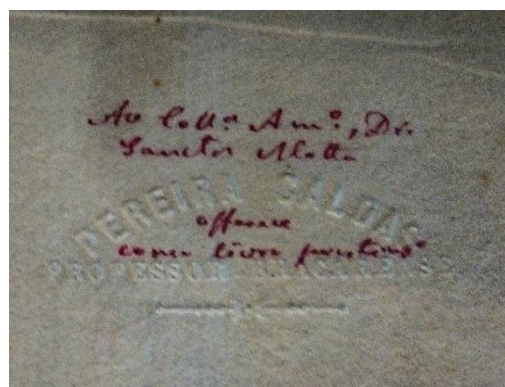 Ao Coll.ª Am.º, Dr.
Sanctos Motta
PEREIRA CALDAS
offerece
como livro
PROFESSOR BRACARENSE